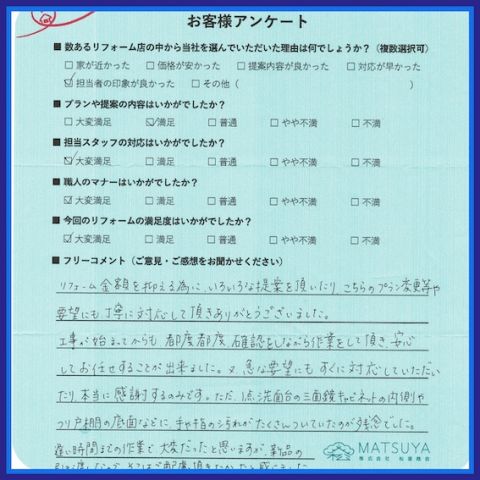 お客様アンケート
■ 数あるリフォーム店の中から当社を選んでいただいた理由は何でしょうか？（複数選択可）
□ 家が近かった □ 価格が安かった □ 提案内容が良かった □ 対応が早かった
☑ 担当者の印象が良かった □ その他（ ）
■ プランや提案の内容はいかがでしたか？
□ 大変満足 ☑ 満足 □ 普通 □ やや不満 □ 不満
■ 担当スタッフの対応はいかがでしたか？
☑ 大変満足 □ 満足 □ 普通 □ やや不満 □ 不満
■ 職人のマナーはいかがでしたか？
☑ 大変満足 □ 満足 □ 普通 □ やや不満 □ 不満
■ 今回のリフォームの満足度はいかがでしたか？
☑ 大変満足 □ 満足 □ 普通 □ やや不満 □ 不満
■ フリーコメント（ご意見・ご感想をお聞かせください）
リフォーム金額を抑える為に、いろいろな提案を頂いたり、こちらのプラン変更等や
要望にも丁寧に対応して頂きありがとうございました。
工事が始まってからも都度都度、確認をしながら作業をして頂き、安心
してお任せすることが出来ました。又、急な要望にもすぐに対応していただい
たり本当に感謝するのみです。ただ、1点、洗面台の三面鏡キャビネットの内側や
つり戸棚の底面などに、手や指の汚れがたくさんついていたのが残念でした。
遅い時間までの作業で大変だったと思いますが、新品の
MATSUYA
株式会社